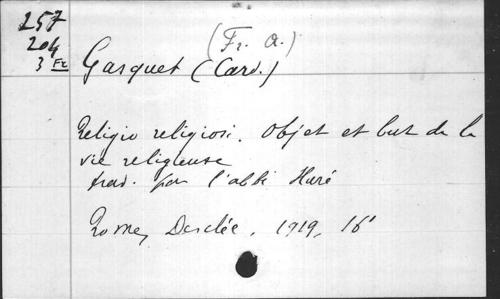 257
204
3 Fr
(Fr. A.)
Gasquet (Card.)
Religio religiosi. Objet et but de la
vie religieuse
trad. par l'abbé Huré
Rome, Desclée, 1919, 16°